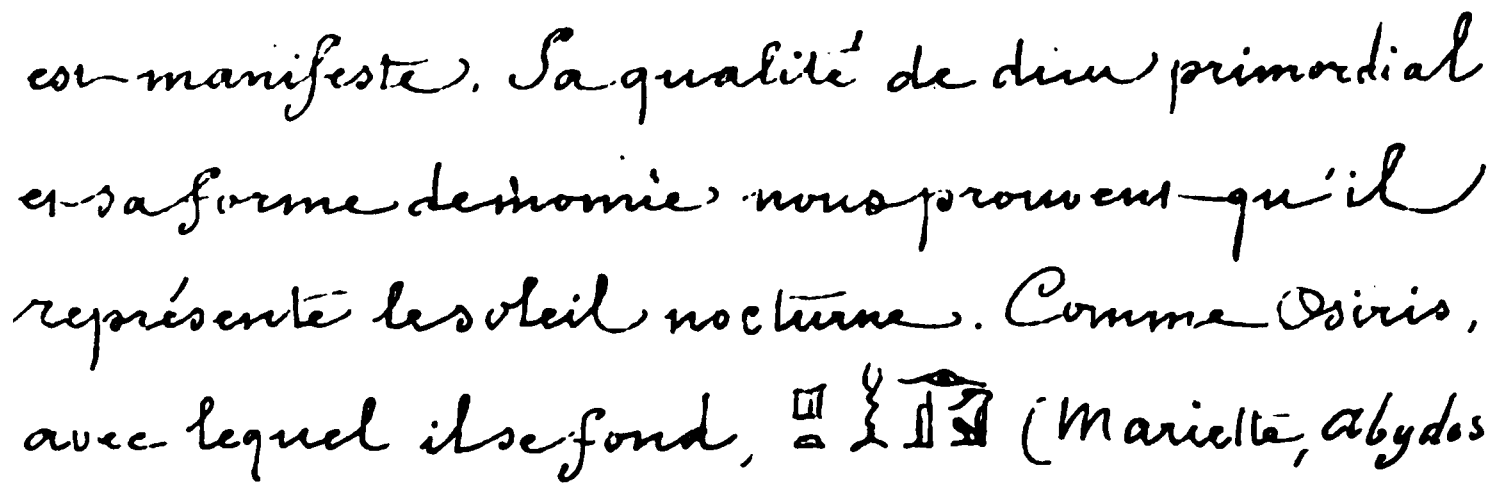 est manifeste. Sa qualité de dieu primordial
et sa forme de momie nous prouvent qu'il
représente le soleil nocturne. Comme Osiris,
avec lequel il se fond, (Mariette, Abydos